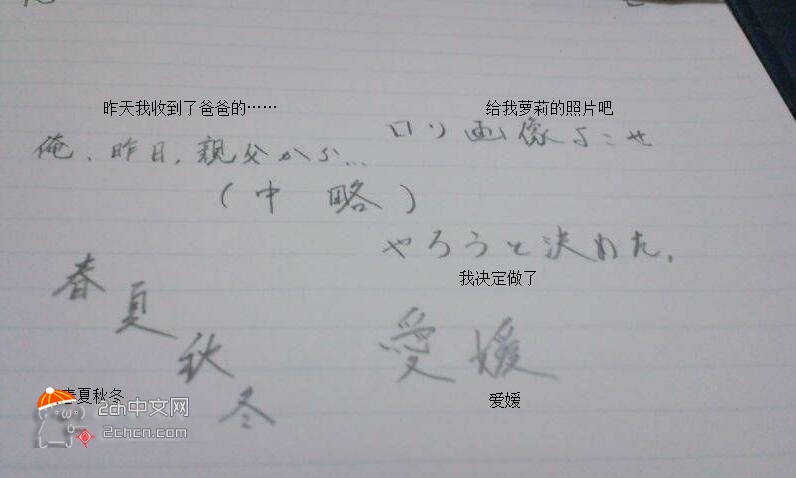 昨天我收到了爸爸的……
给我萝莉的照片吧
俺、昨日、親父から…
ロリ画像よこせ
(中略)
やろうと決めた。
我决定做了
春夏秋冬
愛媛
春夏秋冬
爱媛
2ch中文网
2chcn.com